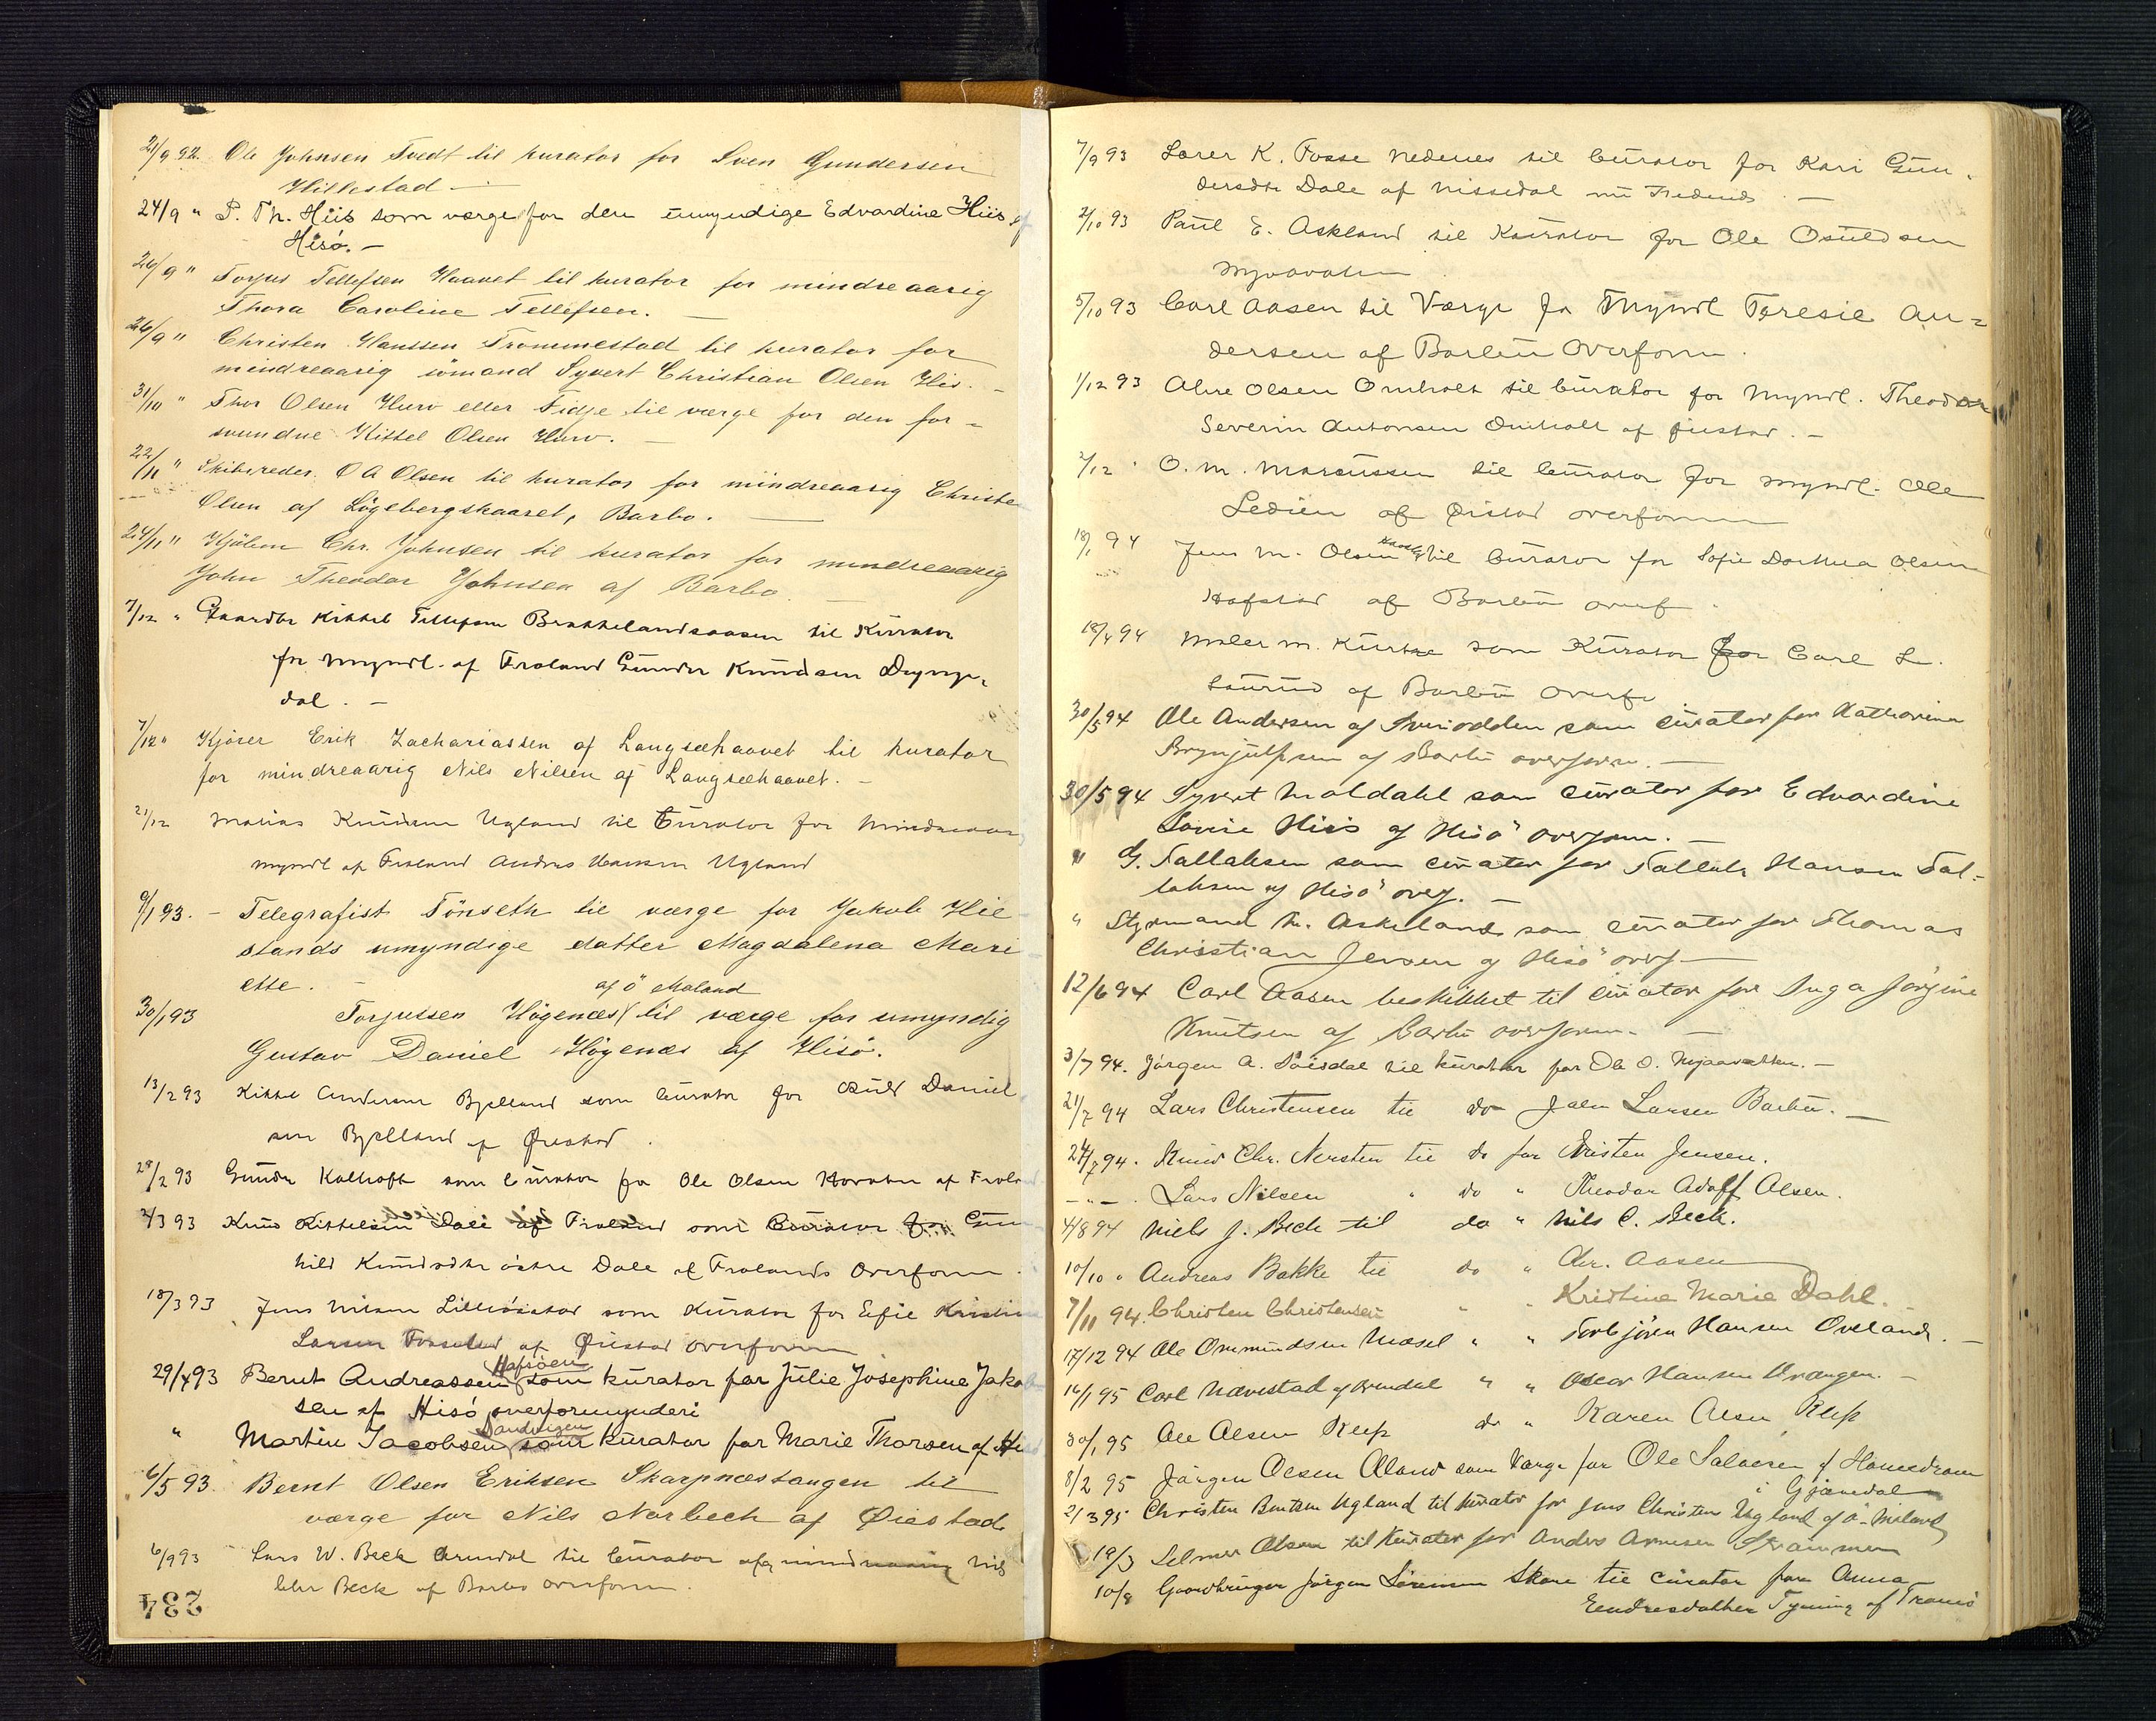 21/9 92. Ole Johnsen Tvedt til kurator for Sven Gundersen
Hillestad —
24/9 " P. Th. Hiis som værge for den umyndige Edvardine Hiis af
Hisö. —
26/9 " Torjus Tellefsen Haavet til kurator for mindreaarig
Thora Caroline Tellefsen. —
26/9 " Christen Hanssen Trommestad til kurator for
mindreaarig sömand Syvert Christian Olsen His. —
31/10 " Thor Olsen Hurv eller Tidje til værge for den for-
svundne Kittel Olsen Hurv. —
22/11 " Skibsreder O A Olsen til kurator for mindreaarig Christe
Olsen af Lögebergskaaret, Barbo. —
24/11 " Kjöbm Chr. Johnsen til kurator for mindreaarig
John Theodor Johnsen af Barbo. —
7/12 " Gaardbr Kittel Tellefsen Brattelandsaasen til Kurator
for myndl. af Froland Gunder Knudsen
dal. —
7/12 " Kjörer Erik Zachariassen af Langsæhaavet til kurator
for mindreaarig Nils Nilsen af Langsæhaavet. —
21/12 Matias Knudsen Ugland til Curator for
myndl af Froland Andres Hansen Ugland
9/1 93. - Telegrafist Tönseth til værge for Jakob Hil
stands umyndige datter Magdalena Mari
ette. —
af ö Moland
30/1 93 Torjussen Högenæs til værge for umyndig
Gustav Daniel Högenæs af Hisö.
13/2 93 Kittel Andersen Bjelland som Curator for Osuld Daniel
sen Bjelland af Öiestad.
28/2 93 Gunder Kalhoft som Curator for Ole Olsen af Frolan
2/3 93 Knud Kittelsen Dale af Froland som Curator for Gun
hild Knudsdtr östre Dale af Frolands Overform.
18/3 93 Jens Nilsen som Kurator for Eefie Kristine
Larsen af Öiestad overform
Hafsöen
29/4 93 Bernt Andreassen som kurator for Julie Josephine Jako
sen af Hisö overformynderi
Sandvigen
" Martin Jacobsen som kurator for Marie Thorsen af His
6/5 93. Bernt Olsen Eriksen Skarpnæstangen til
værge for Nils Norbech af Öiestad.
6/9 93 Lars W. Beck Arendal til Curator Nils
Beck af Barbo overform.
234
7/9 93 Lærer K. Fosse Nedenes til Curator for Kari Gun-
dersdtr Dale af Nissedal —
2/10 93 Paul E. Askland til Kurator for Ole Osuldsen
5/10 93 Carl Aasen til Værge for Myndl Teresie An=
dersen af Barbu Overform.
1/12 93 Olsen Omholt til Curator for Myndl. Theodor
Severin Antonsen Omholt af Öiestad. —
2/12 " O. M. Marcussen til Curator for myndl. Ole
af Öiestad overform
18/1 94 Jens M. Olsen til Curator for Sofie Dorthea Olsen
Hofstad af Barbu overf.
18/4 94 Maler M. som Kurator for Carl L.
af Barbu Overf
30/5 94 Ole Andersen af som curator for Katharina
Brynjulfsen af Barbu overform. —
30/5 94 Syvert Moldahl som curator for Edvardine
Lovise Hiis af Hisö overform. —
" G. Tallaksen som curator for Tallak Hansen Tal-
laksen af Hisö overf. —
" Styrmand N. Askeland som curator for Thomas
Christian Jensen af Hisö overf —
12/6 94 Carl Aasen beskikket til curator for Inga Jörgine
Knutsen af Barbu overform. —
3/7 94. Jörgen A. til kurator for Ole O. —
21/7 94 Lars Christensen til do Larsen Barbu. —
24/7 94. Knud Chr. Nersten til do for Kristen Jensen.
— " — . Lars Nilsen " do " Theodor Adolf Olsen.
4/8 94 Niels J. Beck til do " Nils C. Beck.
10/10 " Andreas Bakke til do " Chr. Aasen
7/11 94. Christen Christensen " " Kristine Marie Dahl.
17/12 94 Ole Ommundsen Mosel " " Torbjörn Hansen Oveland. —
16/1 95 Carl Nævestad af Arendal " " Oscar Hansen Vrangen. —
30/1 95 Ole Olsen Klep do " Karen Olsen Klep
8/2 95 Jörgen Olsen Öland som Værge for Ole Salvesen
i Gjövedal
2/3 95 Christen Bentsen Ugland til Kurator for Jens Christen Ugland af ö-Moland
19/3 Selmer Olsen til Kurator for Anders Strömmen
10/8 Gaardbruger Jörgen Sörensen Skare til curator for Anna
Eendresdatter af Tromö